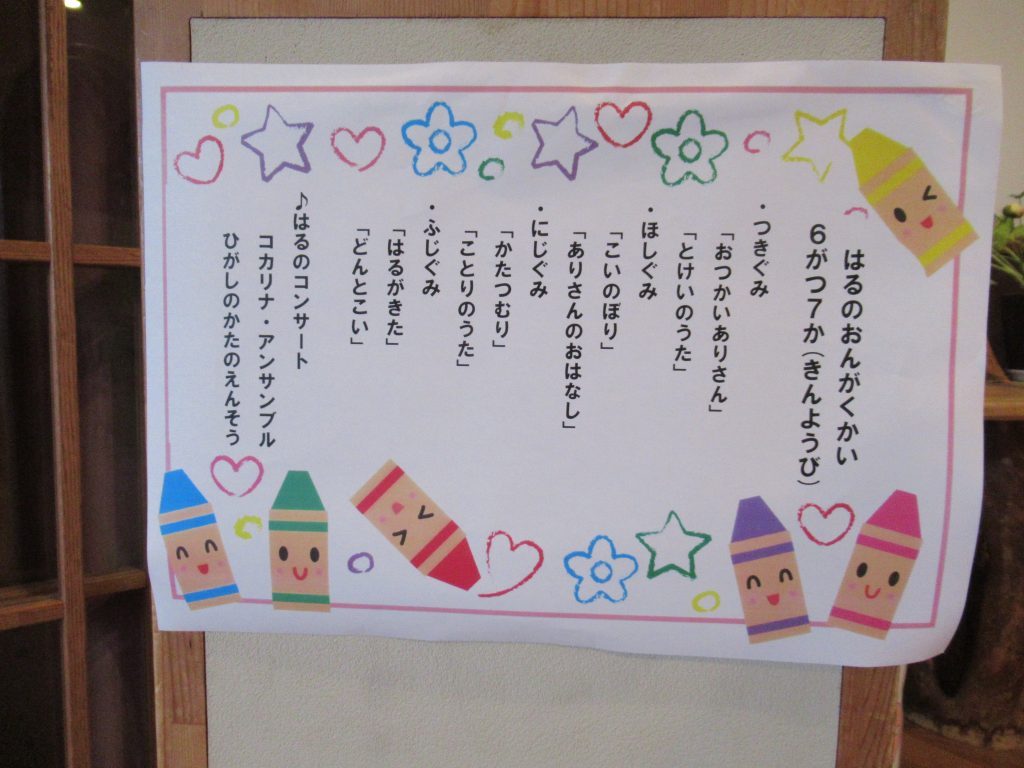 はるのおんがくかい
6がつ7か(きんようび)
・つきぐみ
「おつかいありさん」
「とけいのうた」
・ほしぐみ
「こいのぼり」
「ありさんのおはなし」
・にじぐみ
「かたつむり」
「ことりのうた」
・ふじぐみ
「はるがきた」
「どんとこい」
♪はるのコンサート
コカリナ・アンサンブル
ひがしのかたのえんそう